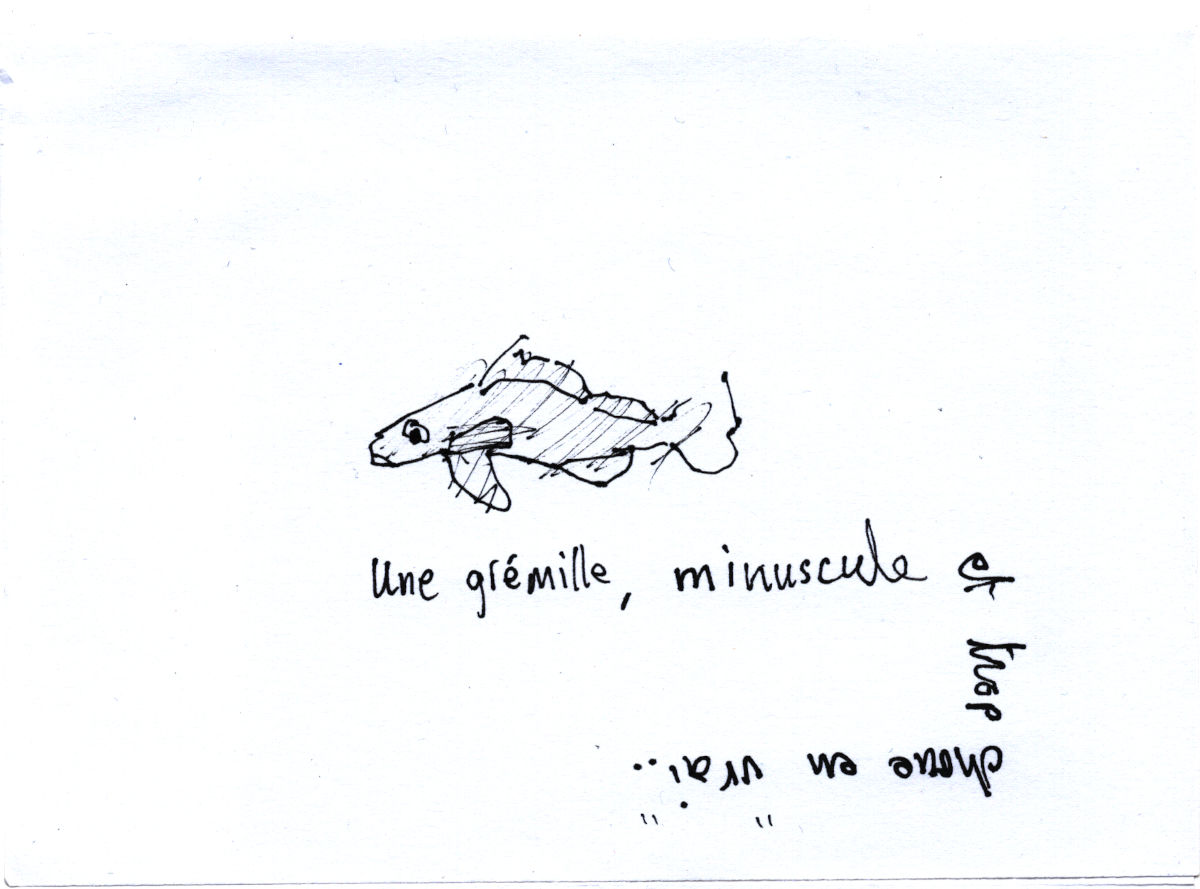 Une grémille, minuscule
et trop
choue en "vrai..."